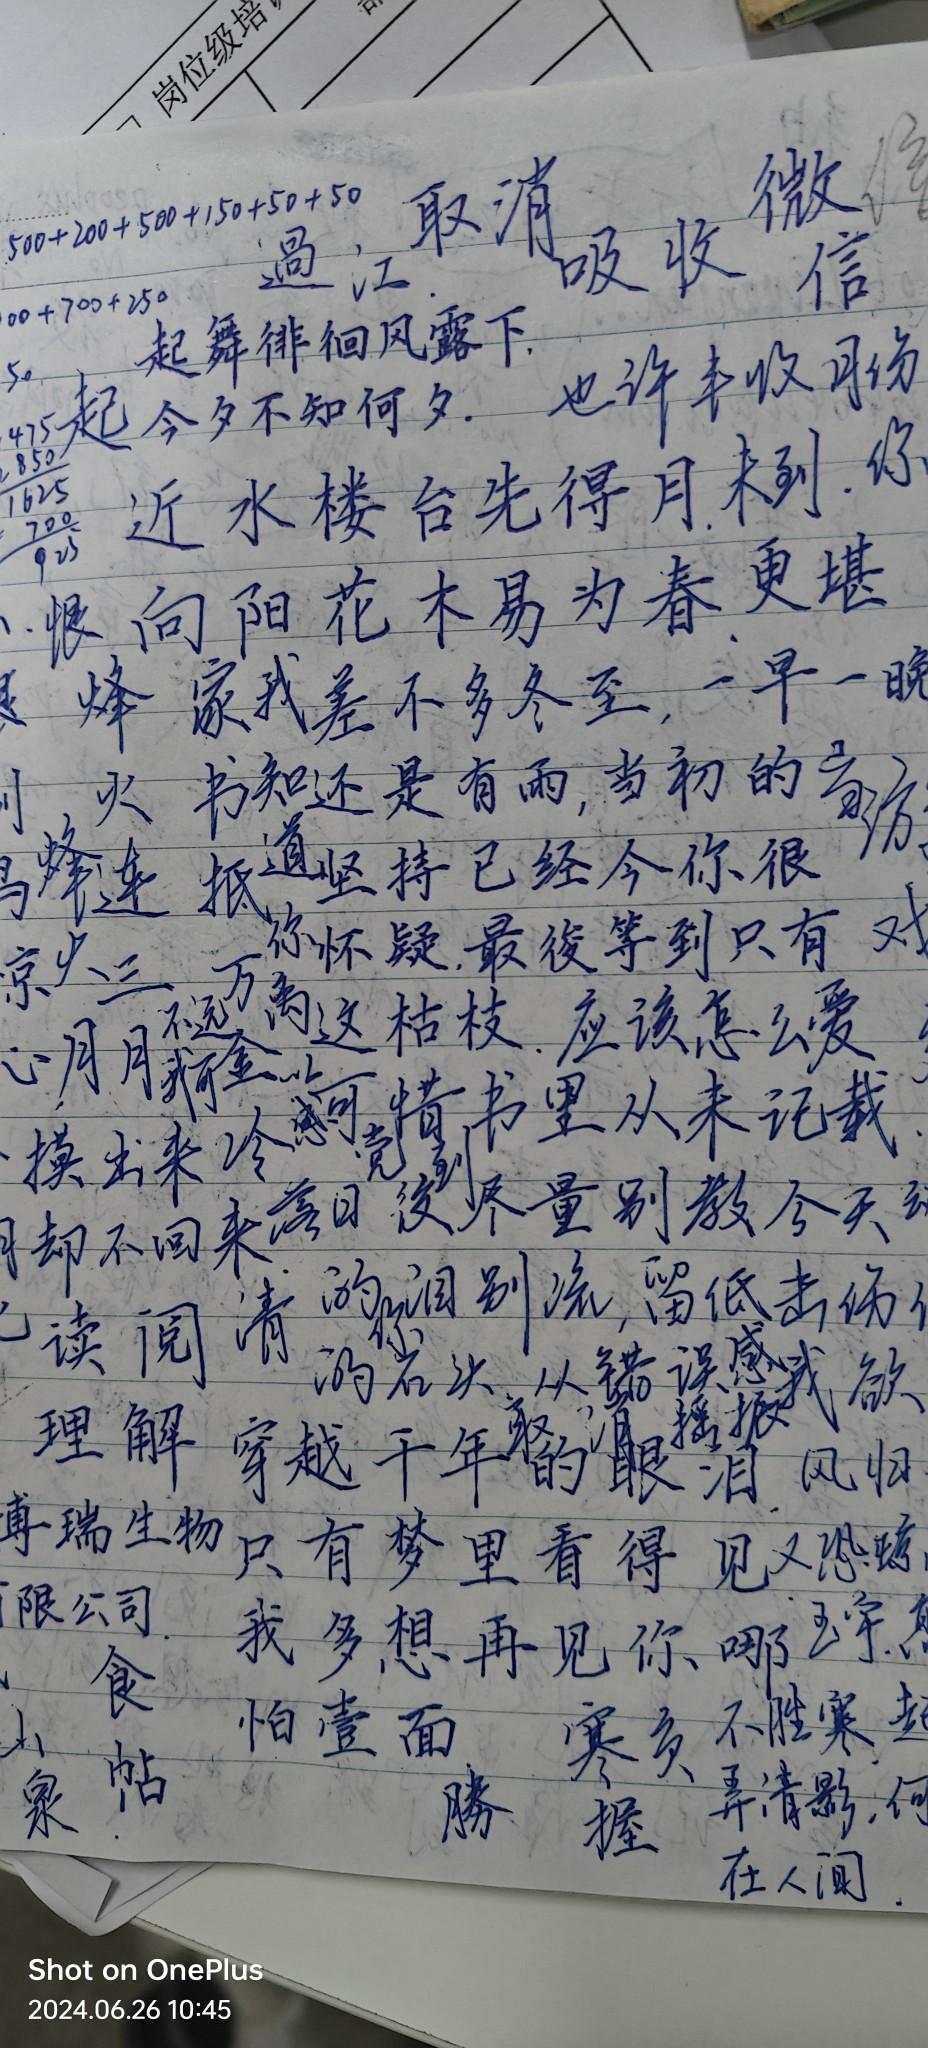 岗位级培
500+200+500+150+50+50
取消
微
过江.
吸收
信
00+700+250
起舞徘徊风露下.
50
起今夕不知何夕.
也许丰收月份
475
850
1625
700
925
近水楼台先得月.
未到.你
恨向阳花木易为春.
更堪
烽家我差不多冬至,一早一晚
火书知还是有雨,当初的
烽连抵道坚持已经今你很
凉少三万你怀疑.最後等到只有
心月月不远金离这枯枝.应该怎么爱
我可以
摸出来冷感可惜书里从未记载.
觉到
月却不回来落日后尽量别教今天
读阅清的泪别流,留低击伤
你的石头.从错误感我欲
理解穿越千年的眼泪.风归
取消摇振
博瑞生物只有梦里看得见又恐琼
限公司.我多想再见你.哪玉宇.
食怕壹面寒负不胜寒.起
山泉.帖勝握弄清影.何
在人间.
Shot on OnePlus
2024.06.26 10:45